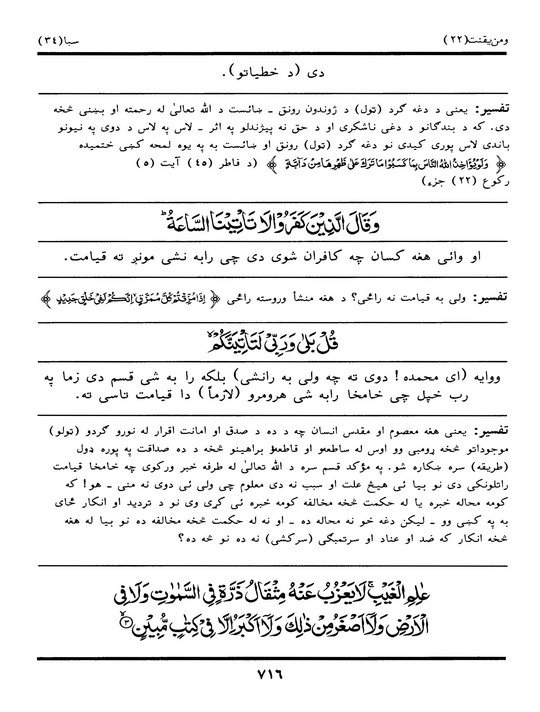 ومن يقنت(٢٢) سبا(٣٤)
دی (د خطیاتو).
تفسیر: یعنی د دغه گرد (ټول) د ژوندون رونق ـ ښائست د الله تعالیٰ له رحمته او بښنی څخه
دی. که د بندگانو د دغی ناشکری او د حق نه پیژندلو په اثر ـ لاس په لاس د دوی په نیونو
باندی لاس پوری کیدی نو دغه گرد (ټول) رونق او ښائست به په یوه لمحه کښی ختمیده
﴿ وَلَوْيُؤَاخِذُ اللهُ النَّاسَ بِمَا كَسَبُوْا مَا تَرَكَ عَلٰى ظَهْرِهَا مِنْ دَآبَّةٍ ﴾ (د فاطر (٤٥) آیت (٥)
رکوع (٢٢) جزء)
وَقَالَ الَّذِيْنَ كَفَرُوْا لَا تَاْتِيْنَا السَّاعَةُ ؕ
او وائی هغه کسان چه کافران شوی دی چی رابه نشی مونږ ته قیامت.
تفسیر: ولی به قیامت نه راځی؟ د هغه منشأ وروسته راځی ﴿ إِذَا مُزِّقْتُمْ كُلَّ مُمَزَّقٍ إِنَّكُمْ لَفِيْ خَلْقٍ جَدِيْدٍ ﴾
قُلْ بَلٰى وَرَبِّيْ لَتَاْتِيَنَّكُمْ ۙ
ووایه (ای محمده! دوی ته چه ولی به رانشی) بلکه را به شی قسم دی زما په
رب خپل چی خامخا رابه شی هرومرو (لازماً) دا قیامت تاسی ته.
تفسیر: یعنی هغه معصوم او مقدس انسان چه د ده د صدق او امانت اقرار له نورو گردو (ټولو)
موجوداتو څخه ړومبی وو اوس له ساطعهؤ او قاطعهؤ براهینو څخه د ده صداقت په پوره ډول
(طریقه) سره ښکاره شو. په مؤکد قسم سره د الله تعالیٰ له طرفه خبر ورکوی چه خامخا قیامت
راتلونکی دی نو بیا ئی هیڅ علت او سبب نه دی معلوم چی ولی ئی دوی نه منی ـ هو! که
کومه محاله خبره یا له حکمت څخه مخالفه کومه خبره ئی کړی وی نو د تردید او انکار ځای
به په کښی وو ـ لیکن دغه خو نه محاله ده ـ او نه له حکمت څخه مخالفه ده نو بیا له هغه
څخه انکار که ضد او عناد او سرتمبگی (سرکشی) نه ده نو څه ده؟
عٰلِمِ الْغَيْبِ ۚ لَا يَعْزُبُ عَنْهُ مِثْقَالُ ذَرَّةٍ فِي السَّمٰوٰتِ وَلَا فِي
الْاَرْضِ وَلَآ اَصْغَرُ مِنْ ذٰلِكَ وَلَآ اَكْبَرُ اِلَّا فِيْ كِتٰبٍ مُّبِيْنٍ ۙ۝٣
٧١٦